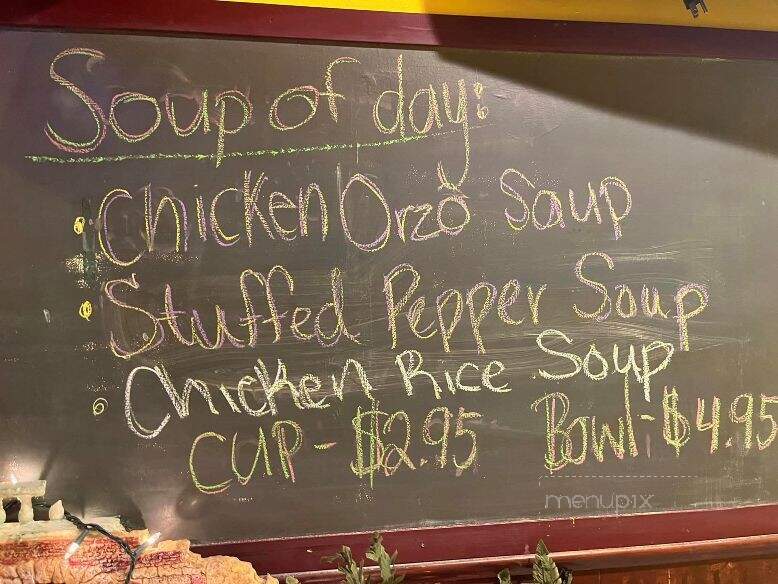 Soup of day:
• Chicken Orzo Soup
• Stuffed Pepper Soup
• Chicken Rice Soup
CUP - $2.95 Bowl - $4.95
menupix